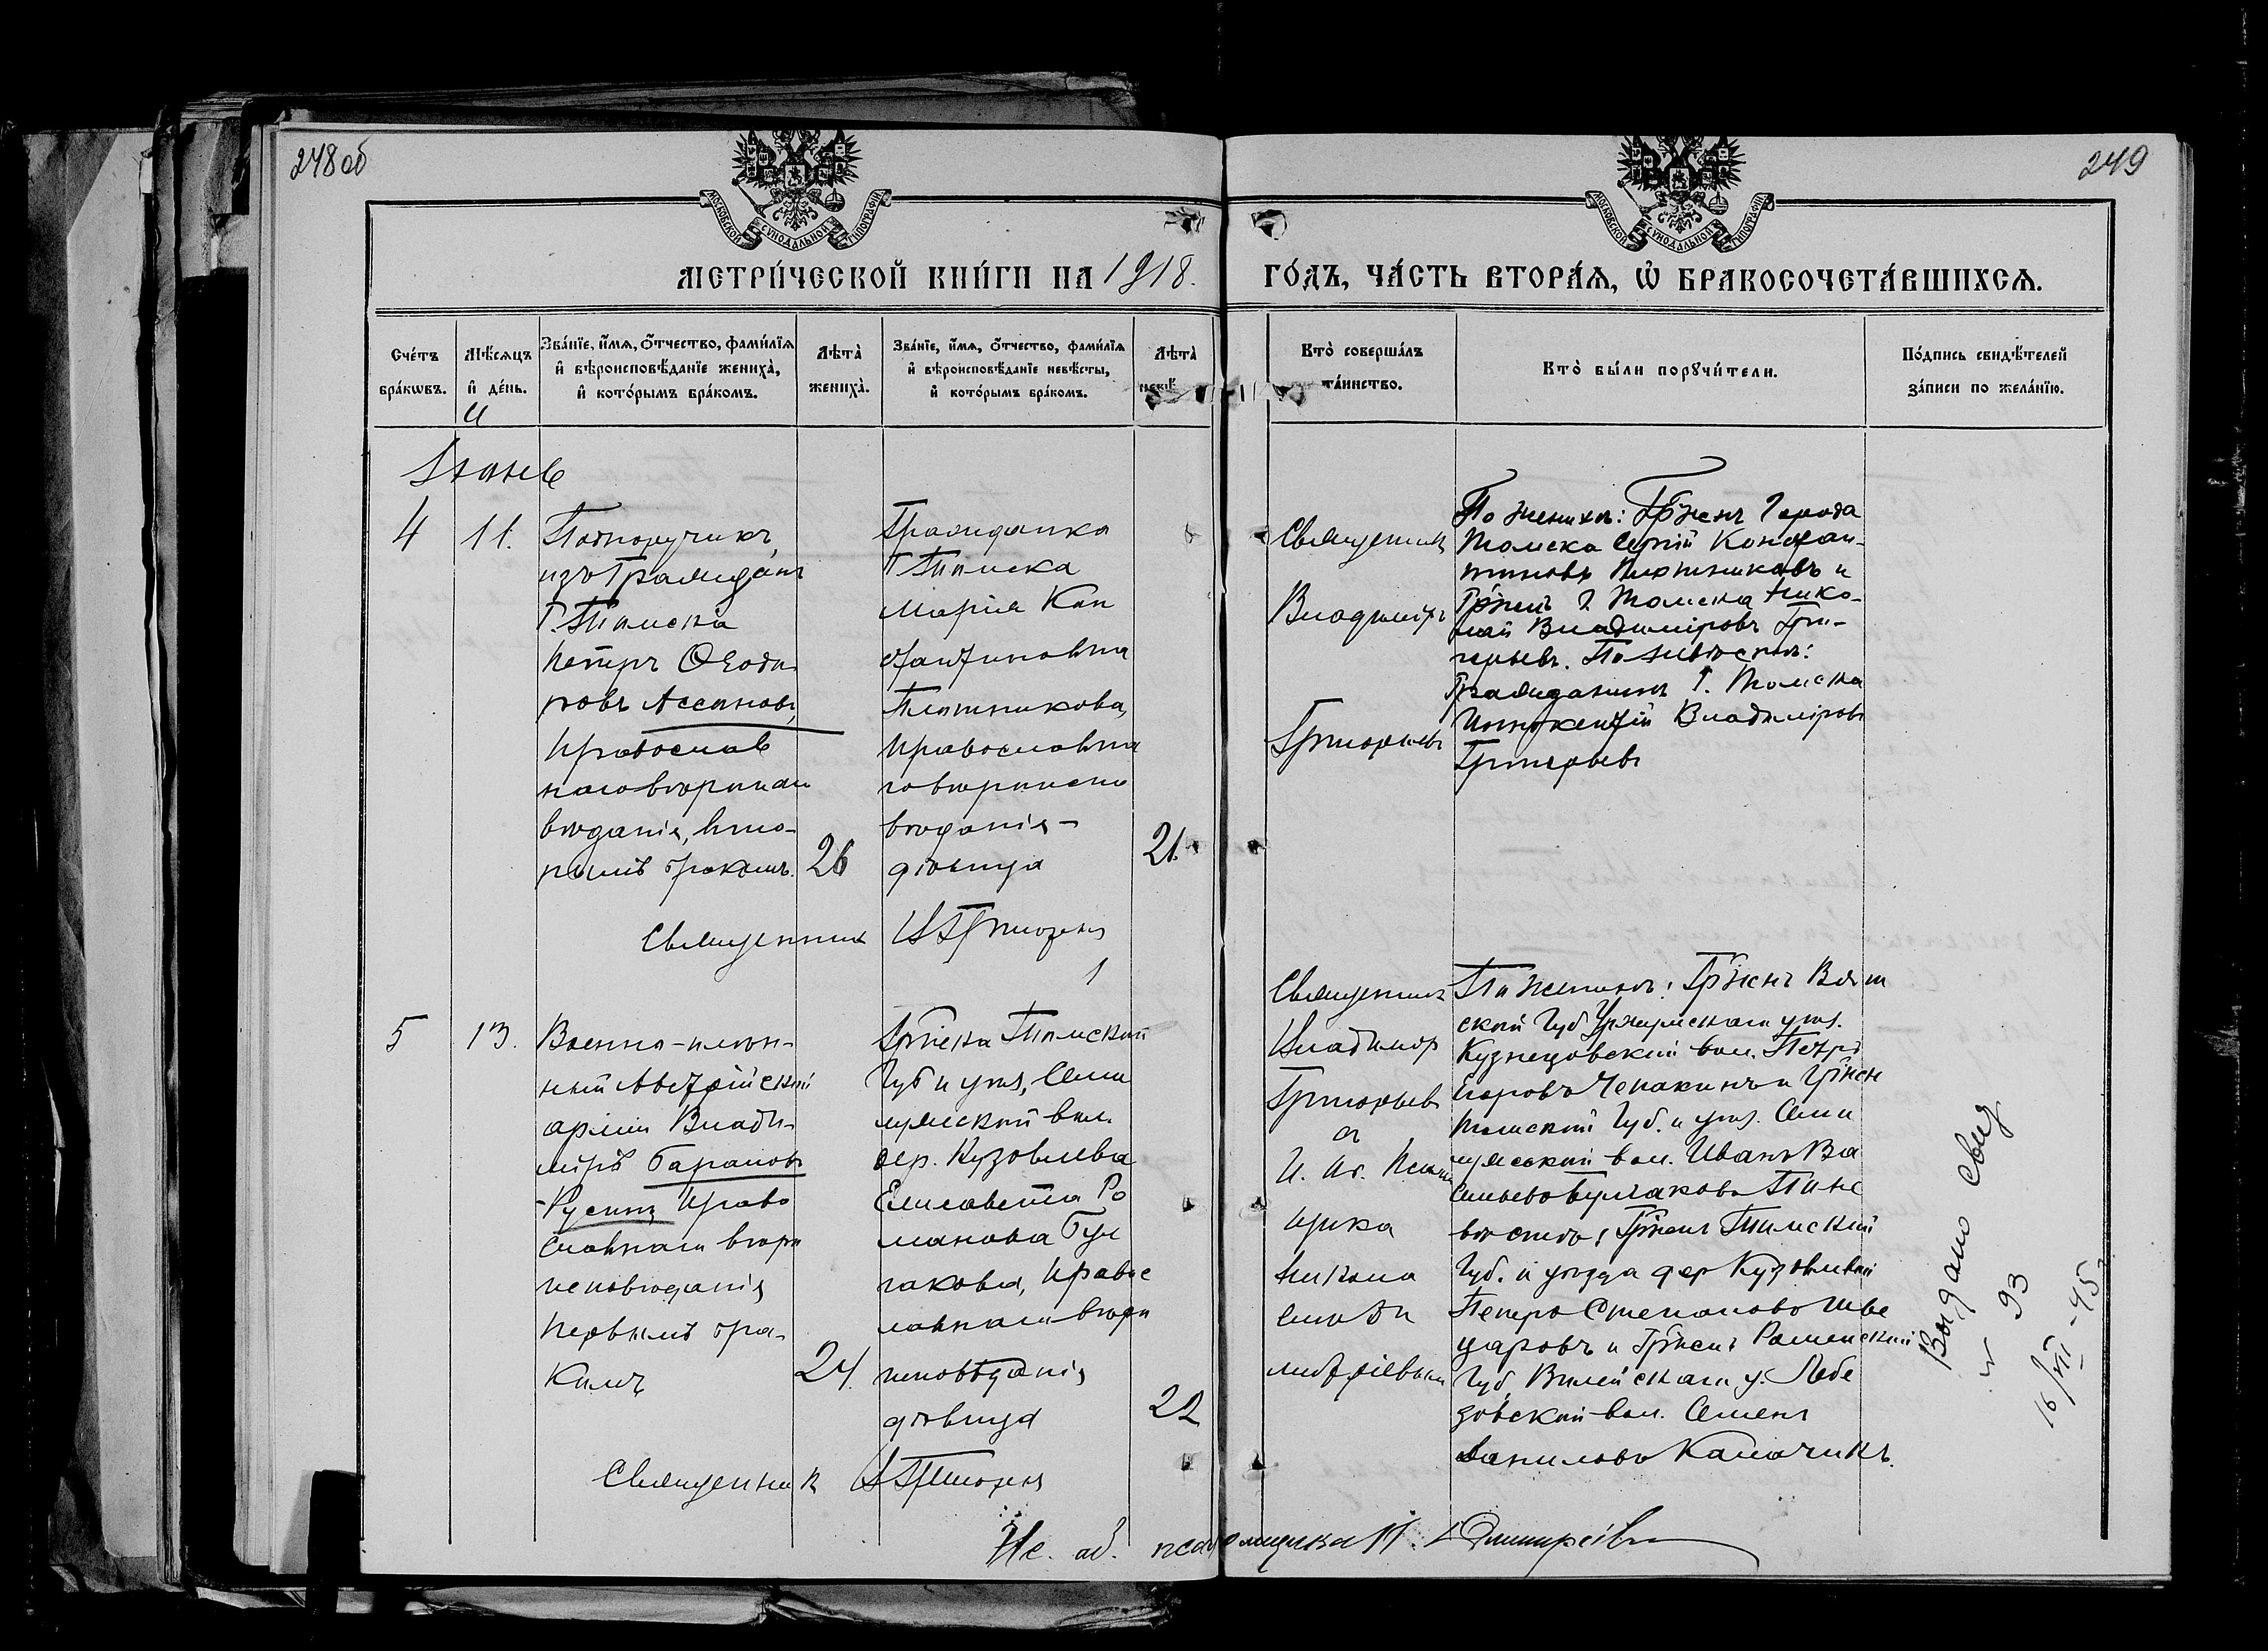 248 об
249
МОСКОВСКОЙ СѴНОДАЛЬНОЙ ТИПОГРАФІИ
МОСКОВСКОЙ СѴНОДАЛЬНОЙ ТИПОГРАФІИ
МЕТРИ́ЧЕСКОЙ КНИ́ГИ НА 1918.
ГО́ДЪ, ЧА́СТЬ ВТОРА́Ѧ, Ѡ БРАКОСОЧЕТА́ВШИХСѦ.
Сче́тъ бра́кѡвъ.
Мѣ́сѧцъ и҆ де́нь.
Зва́нїе, и҆́мѧ, ѻ҆́тчество, фами́лїѧ и҆ вѣроисповѣ́данїе жениха̀, и҆ кото́рымъ бра́комъ.
Лѣта̀ жениха̀.
Зва́нїе, и҆́мѧ, ѻ҆́тчество, фами́лїѧ и҆ вѣроисповѣ́данїе невѣ́сты, и҆ кото́рымъ бра́комъ.
Лѣта̀
Кто̀ соверша́лъ та́инство.
Кто̀ бы́ли порꙋчи́тели.
По́дпись свидѣ́телей за́писи по жела́нїю.
4
11.
Подпоручикъ,
изъ Гражданъ
Г. Томска
Петръ Ѳеодо
ровъ Ассановъ,
Православ
наго вѣроиспо
вѣданія, вто-
рымъ бракомъ.
26
Гражданка
Г. Томска
Марія Кон
стантиновна
Плотникова,
Православна
го вѣроиспо
вѣданія -
дѣвица
21.
Священникъ
Владиміръ
Григорьевъ
По женихѣ: Гр-нъ Города
Томска Сергій Констан-
тиновъ Плотниковъ и
Гр-нъ г. Томска Нико-
лай Владиміровъ Гри-
горьевъ. По невѣстѣ:
Гражданинъ г. Томска
Иннокентій Владиміровъ
Григорьевъ
Священникъ В. Григорьевъ
5
13.
Военно-плѣн-
ный Австрійской
арміи Влади-
міръ Барановъ
Русинъ Право
славнаго вѣрои
исповѣданія
Первымъ бра-
комъ
24.
Гр-нка Томской
Губ и уѣз, Семи
лужской вол.
дер. Кузовлева
Елисавета Ро
манова Бул
гакова, Правос
лавнаго вѣрои
исповѣданія
дѣвица
22
Священникъ
Владимір
Григорьевъ
и
И. об. Псалом
щика
Никола
Дмитріевъ
По женихѣ: Гр-нъ Вят
ской Губ Уржумскаго уѣз.
Кузнецовской вол. Петръ
Егоровъ Чепакинъ и Гр-нъ
Томской Губ. и уѣз. Семи
лужской вол. Иванъ Ва
сильевъ Булгаковъ По не
вѣстѣ: Гр-нъ Томской
Губ. и уѣзда дер Кузовлевой
Петръ Степановъ Шве
царовъ и Гр-нъ
Губ, Вилейскаго у. Лебе
дѣвской вол. Семенъ
Даниловъ Камачикъ.
Священник В. Григорьевъ
Выдано свид
№ 93
16/VII-45
Ис. об. псаломщика Н. Дмитріевъ